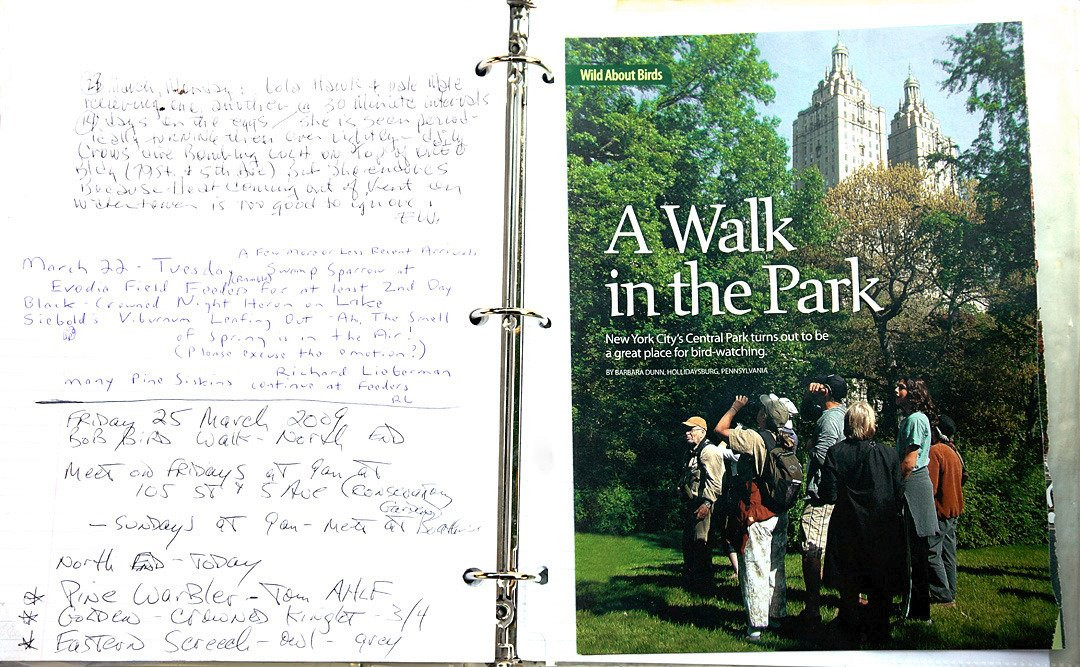 March, : Lola Hawk & pale Male
relieving one another @ 30 minute intervals
days on the eggs / she is seen period-
ically turning them over lightly - daily
Crows are Bombing Light on top of
Bldg (71st & 5th Ave) But She endures
Because Heat Coming out of Vent on
Watertower is too good to ignore!
E.W.
A Few More or Less Recent Arrivals
March 22 - Tuesday Swamp Sparrow at
Evodia Field Feeders For at least 2nd Day
Black-Crowned Night Heron on Lake
Siebold's Viburnum Leafing Out - Ah, The Smell
of Spring is in the Air!
(Please excuse the emotion?)
Richard Lieberman
many Pine Siskins continue at Feeders
RL
FRIDAY 25 March 2009
BOB BIRD Walk - NORTH END
Meet on FRIDAYS at 9am at
105 ST & 5 Ave (Conservatory
Garden)
- SUNDAYS AT 9am - Meet at Boathouse
North END - TODAY
* Pine Warbler - Tom AHLF
* GOLDEN - CROWNED Kinglet - 3/4
* Eastern Screech - owl - grey
Wild About Birds
A Walk
in the Park
New York City's Central Park turns out to be
a great place for bird-watching.
BY BARBARA DUNN, HOLLIDAYSBURG, PENNSYLVANIA